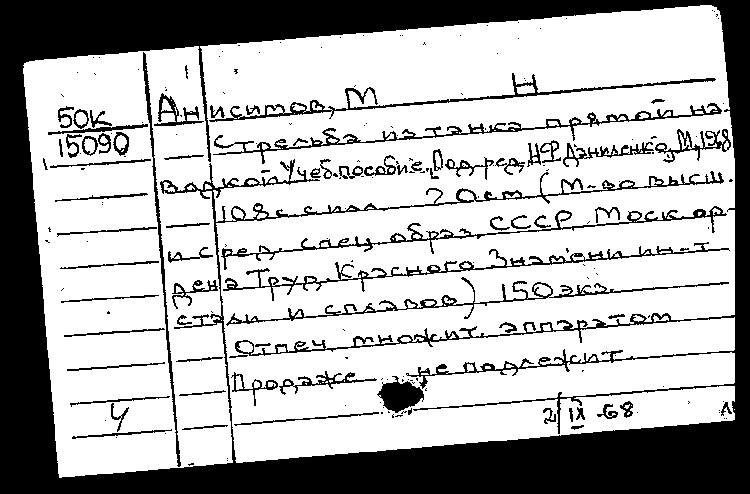 50к
15090
Анисимов, М Н
Стрельба из танка прямой на-
водкой Учеб. пособие. Под ред. Н.Ф. Даниленко, М, 1968
108с с илл. 20см (М-во высш.
и сред. спец образ. СССР Моск ор
дена Труд. Красного Знамени ин-т
стали и сплавов) 150 экз.
Отпеч. множит. аппаратом
Продаже не подлежит.
4
2/IX-68